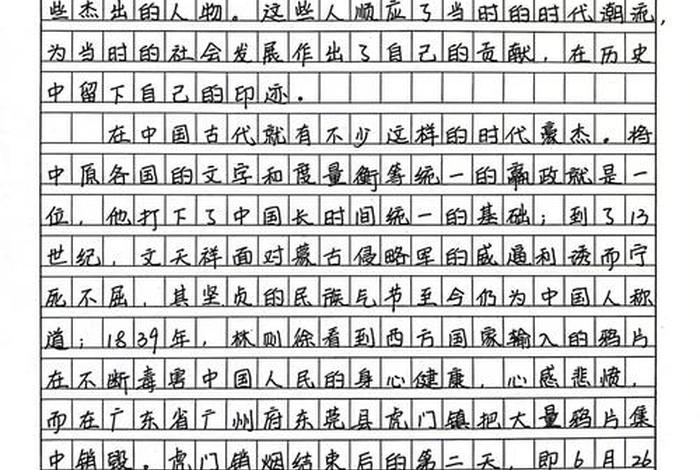 些杰出的人物。这些人顺应了当时的时代潮流,
为当时的社会发展作出了自己的贡献,在历史
中留下自己的印迹。
在中国古代就有不少这样的时代豪杰。将
中原各国的文字和度量衡等统一的嬴政就是一
位,他打下了中国长时间统一的基础;到了13
世纪,文天祥面对蒙古侵略军的威逼利诱而宁
死不屈,其坚贞的民族气节至今仍为中国人称
道;1839年,林则徐看到西方国家输入的鸦片
在不断毒害中国人民的身心健康,心感悲愤,
而在广东省广州府东莞县虎门镇把大量鸦片集
中销毁。虎门销烟结束后的第二天,即6月26